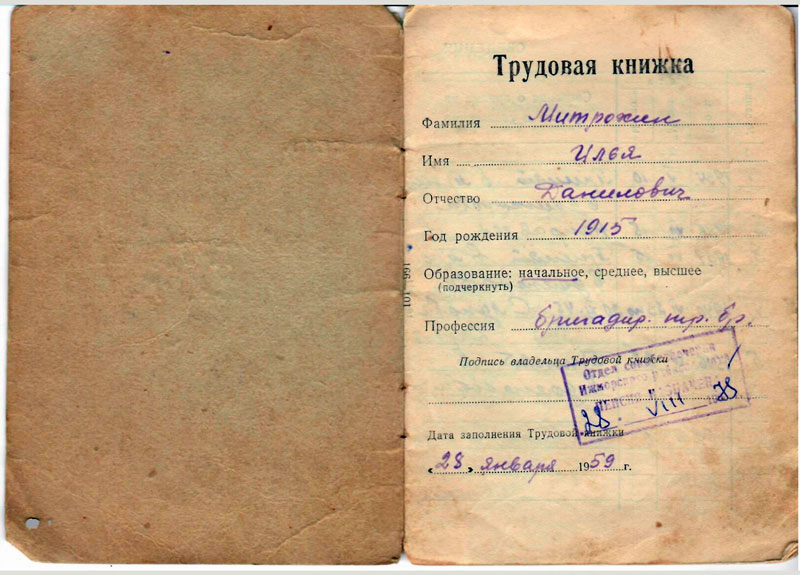 Трудовая книжка
Фамилия Митрохин
Имя Илья
Отчество Данилович
Год рождения 1915
Образование: начальное, среднее, высшее
(подчеркнуть)
Профессия бригадир. тр. бр.
Подпись владельца Трудовой книжки
Отдел
Ижморского
28. VIII 78
Дата заполнения Трудовой книжки
«28» января 1959 г.